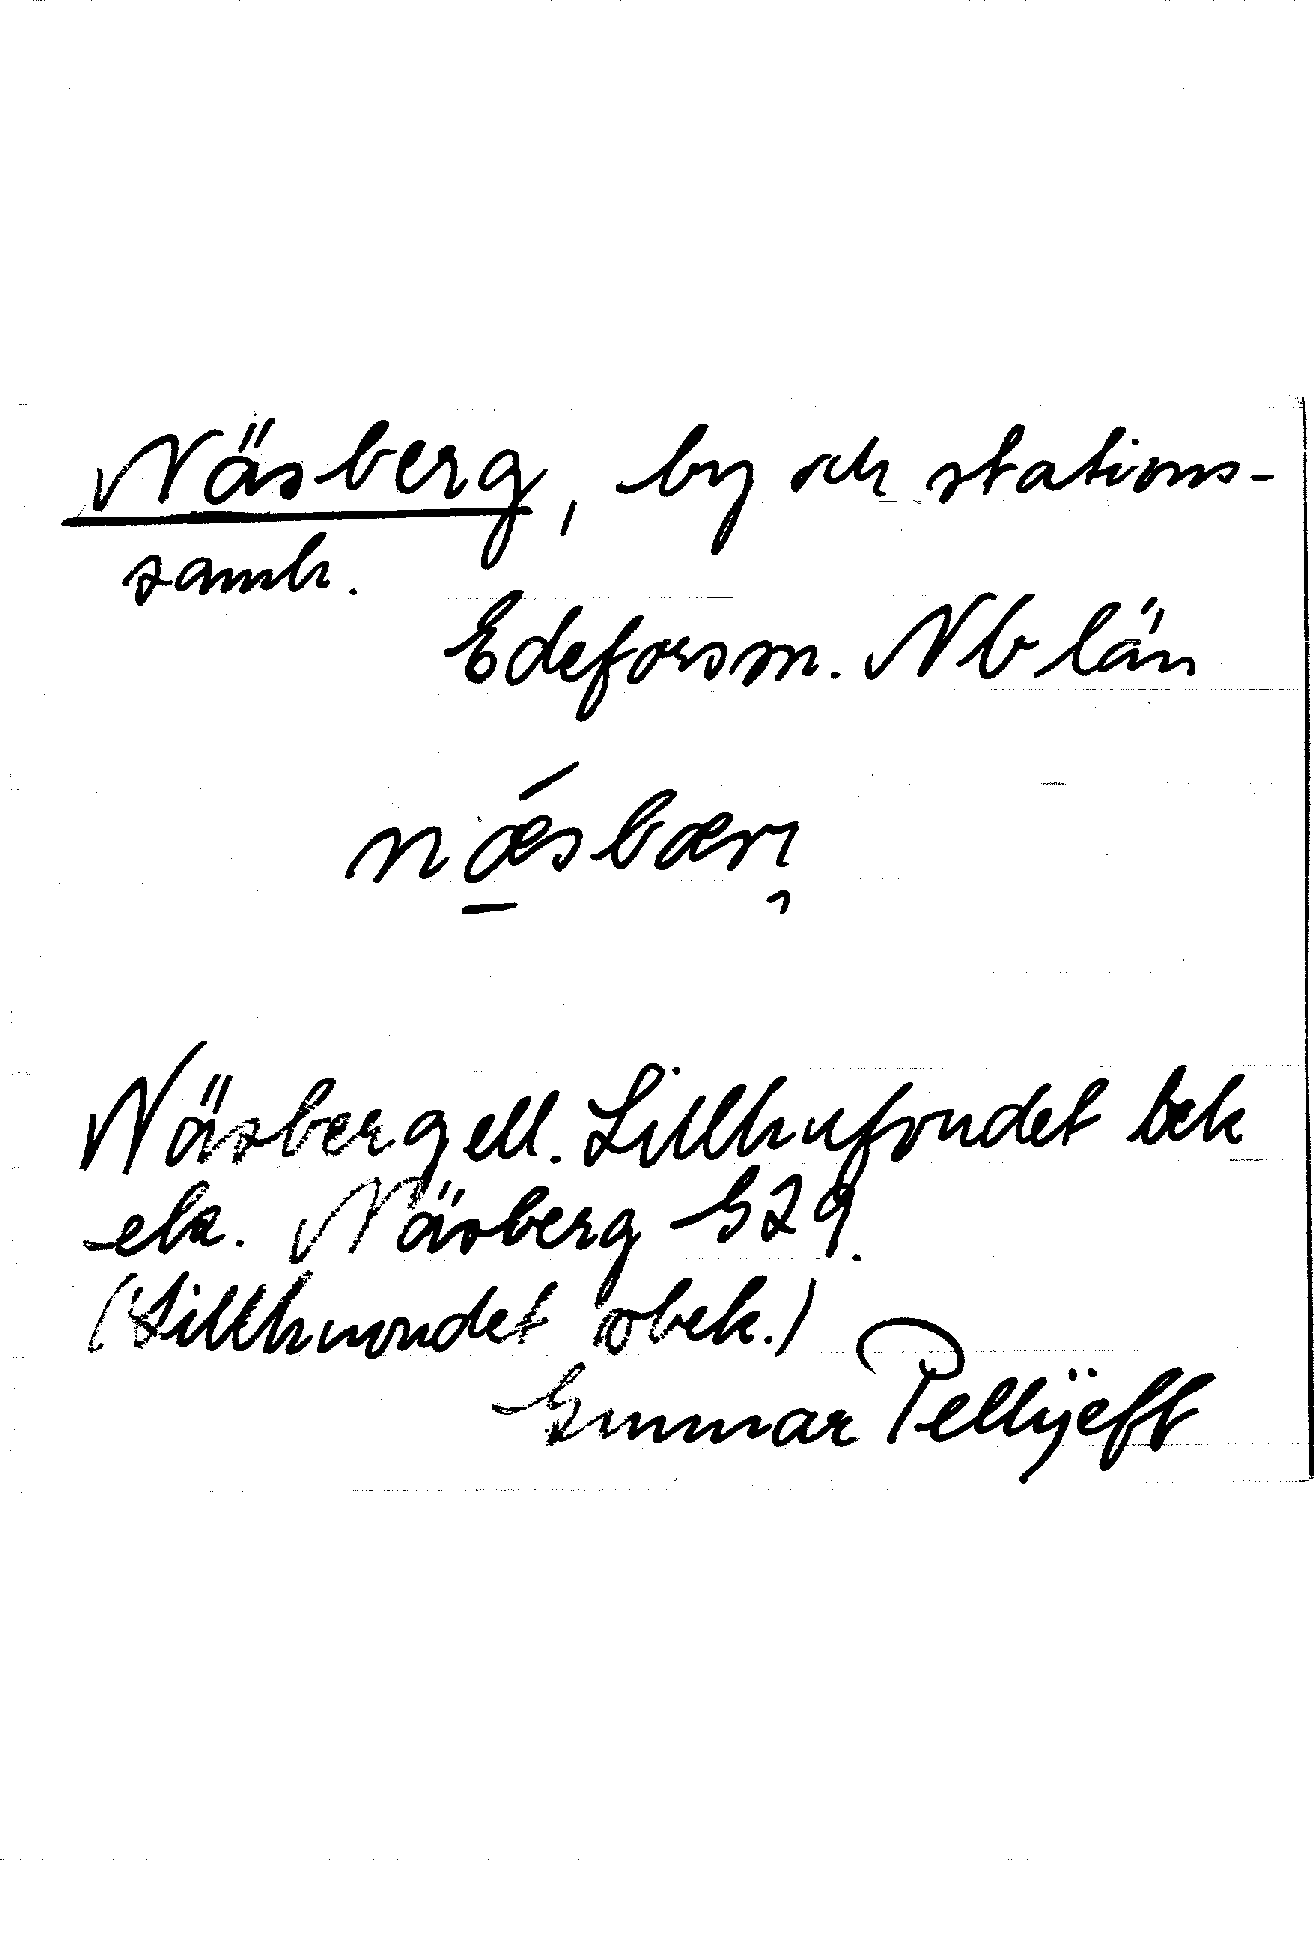 Näsberg, by och stations-
samh.
Edeforsm. Nb län
näsbærj
Näsberg ell. Lillhufvudet bek
ek. Näsberg G29.
(Lillhuvudet obek.)
Gunnar Pellijeff